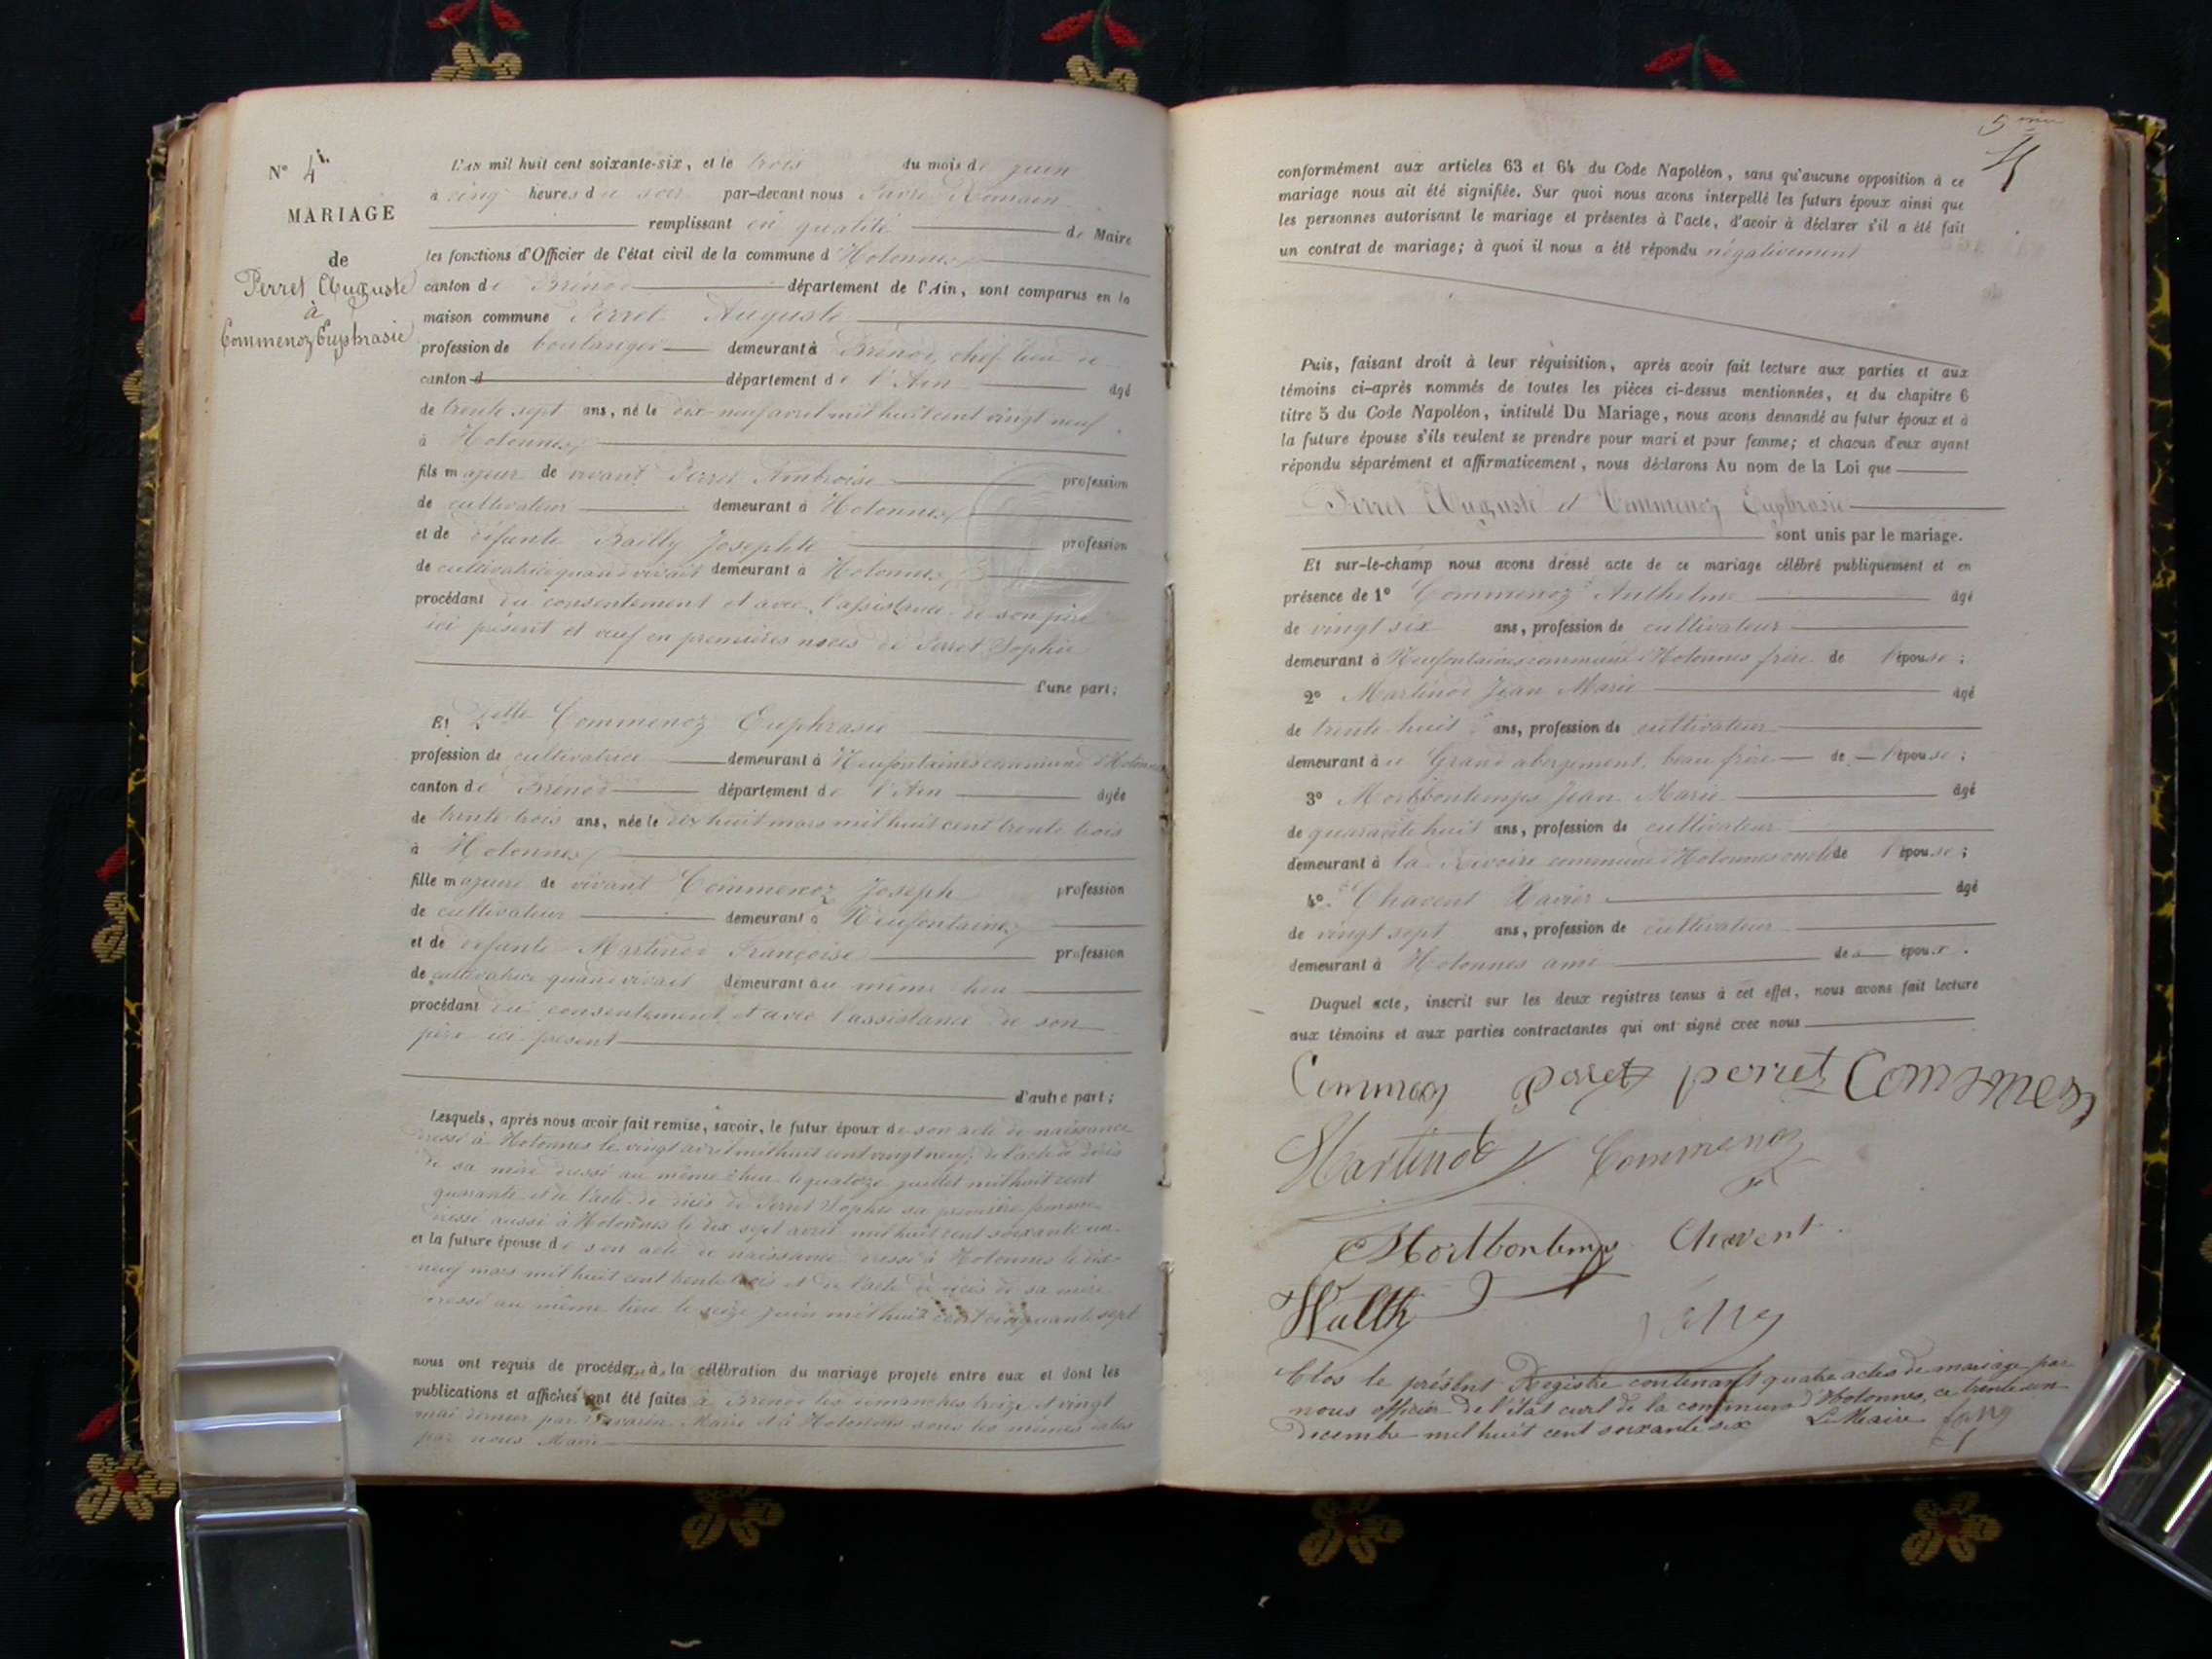 N° 4
MARIAGE
de
Perret Auguste
à
Commenoz Euphrasie
L'AN mil huit cent soixante-six, et le trois du mois de juin
à cinq heures du soir par-devant nous Romain
remplissant en qualité de Maire
les fonctions d'Officier de l'état civil de la commune d'Hotonnes
canton de Brénod département de l'Ain, sont comparus en la
maison commune Perret Auguste
profession de boulanger demeurant à Brénod, chef lieu de
canton d département de l'Ain âgé
de trente sept ans, né le dix-neuf avril mil huit cent vingt neuf
à Hotonnes
fils majeur de vivant Perret Ambroise profession
de cultivateur demeurant à Hotonnes
et de défunte Bailly Josephte profession
de cultivatrice quand vivait demeurant à Hotonnes
procédant du consentement et avec l'assistance de son père
ici présent et veuf en premières noces de Perret Sophie
d'une part;
Et Delle Commenoz Euphrasie
profession de cultivatrice demeurant à Neufontaines commune d'Hotonnes
canton de Brénod département de l'Ain âgée
de trente trois ans, née le dix huit mars mil huit cent trente trois
à Hotonnes
fille majeure de vivant Commenoz Joseph profession
de cultivateur demeurant à Neufontaines
et de défunte Martinod Françoise profession
de cultivatrice quand vivait demeurant au même lieu
procédant du consentement et avec l'assistance de son
père ici présent
d'autre part;
Lesquels, après nous avoir fait remise, savoir, le futur époux de son acte de naissance
dressé à Hotonnes le vingt avril mil huit cent vingt neuf, de l'acte de décès
de sa mère dressé au même lieu le quatorze juillet mil huit cent
quarante et de l'acte de décès de Perret Sophie sa première femme
dressé aussi à Hotonnes le dix sept avril mil huit cent soixante un
et la future épouse de son acte de naissance dressé à Hotonnes le dix-
neuf mars mil huit cent trente trois et de l'acte de décès de sa mère
dressé au même lieu le seize juin mil huit cent cinquante sept
nous ont requis de procéder à la célébration du mariage projeté entre eux et dont les
publications et affiches ont été faites à Brénod les dimanches treize et vingt
mai dernier par Savarin Maire et à Hotonnes sous les mêmes dates
par nous Maire
conformément aux articles 63 et 64 du Code Napoléon, sans qu'aucune opposition à ce
mariage nous ait été signifiée. Sur quoi nous avons interpellé les futurs époux ainsi que
les personnes autorisant le mariage et présentes à l'acte, d'avoir à déclarer s'il a été fait
un contrat de mariage; à quoi il nous a été répondu négativement
Puis, faisant droit à leur réquisition, après avoir fait lecture aux parties et aux
témoins ci-après nommés de toutes les pièces ci-dessus mentionnées, et du chapitre 6
titre 5 du Code Napoléon, intitulé Du Mariage, nous avons demandé au futur époux et à
la future épouse s'ils veulent se prendre pour mari et pour femme; et chacun d'eux ayant
répondu séparément et affirmativement, nous déclarons Au nom de la Loi que
Perret Auguste et Commenoz Euphrasie
sont unis par le mariage.
Et sur-le-champ nous avons dressé acte de ce mariage célébré publiquement et en
présence de 1° Commenoz Anthelme âgé
de vingt six ans, profession de cultivateur
demeurant à Neufontaines commune d'Hotonnes frère de l'épouse;
2° Martinod Jean Marie âgé
de trente huit ans, profession de cultivateur
demeurant à Grand abergement, beau frère de l'épouse;
3° Jean Marie âgé
de quarante huit ans, profession de cultivateur
demeurant à la Rivoire commune d'Hotonnes oncle de l'épouse;
4° Chavent Xavier âgé
de vingt sept ans, profession de cultivateur
demeurant à Hotonnes ami de époux.
Duquel acte, inscrit sur les deux registres tenus à cet effet, nous avons fait lecture
aux témoins et aux parties contractantes qui ont signé avec nous
Commenoz perret perret Commenoz
Martinod Commenoz
Chavent
Clos le présent Registre contenant quatre actes de mariage par
nous officier de l'état civil de la commune d'Hotonnes, ce trente un
décembre mil huit cent soixante six Le Maire